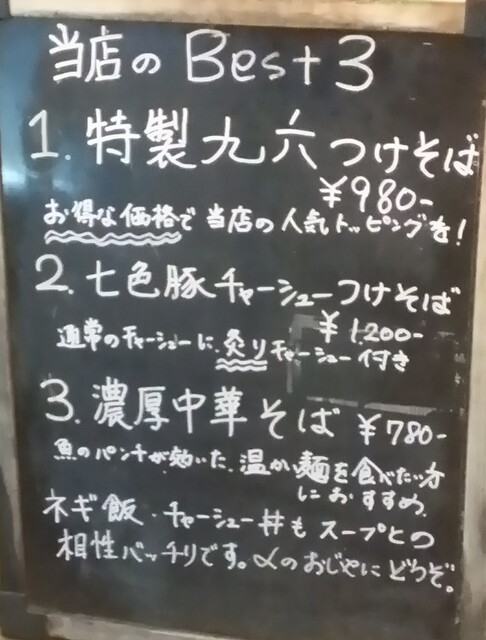 当店の Best 3
1. 特製九六つけそば
¥980-
お得な価格で 当店の人気トッピングを!
2. 七色豚チャーシューつけそば
¥1.200-
通常のチャーシューに、炙りチャーシュー付き
3. 濃厚中華そば ¥780-
魚のパンチが効いた、温かい麺を食べたい方
におすすめ。
ネギ飯・チャーシュー丼もスープとの
相性バッチリです。〆のおじやにどうぞ。